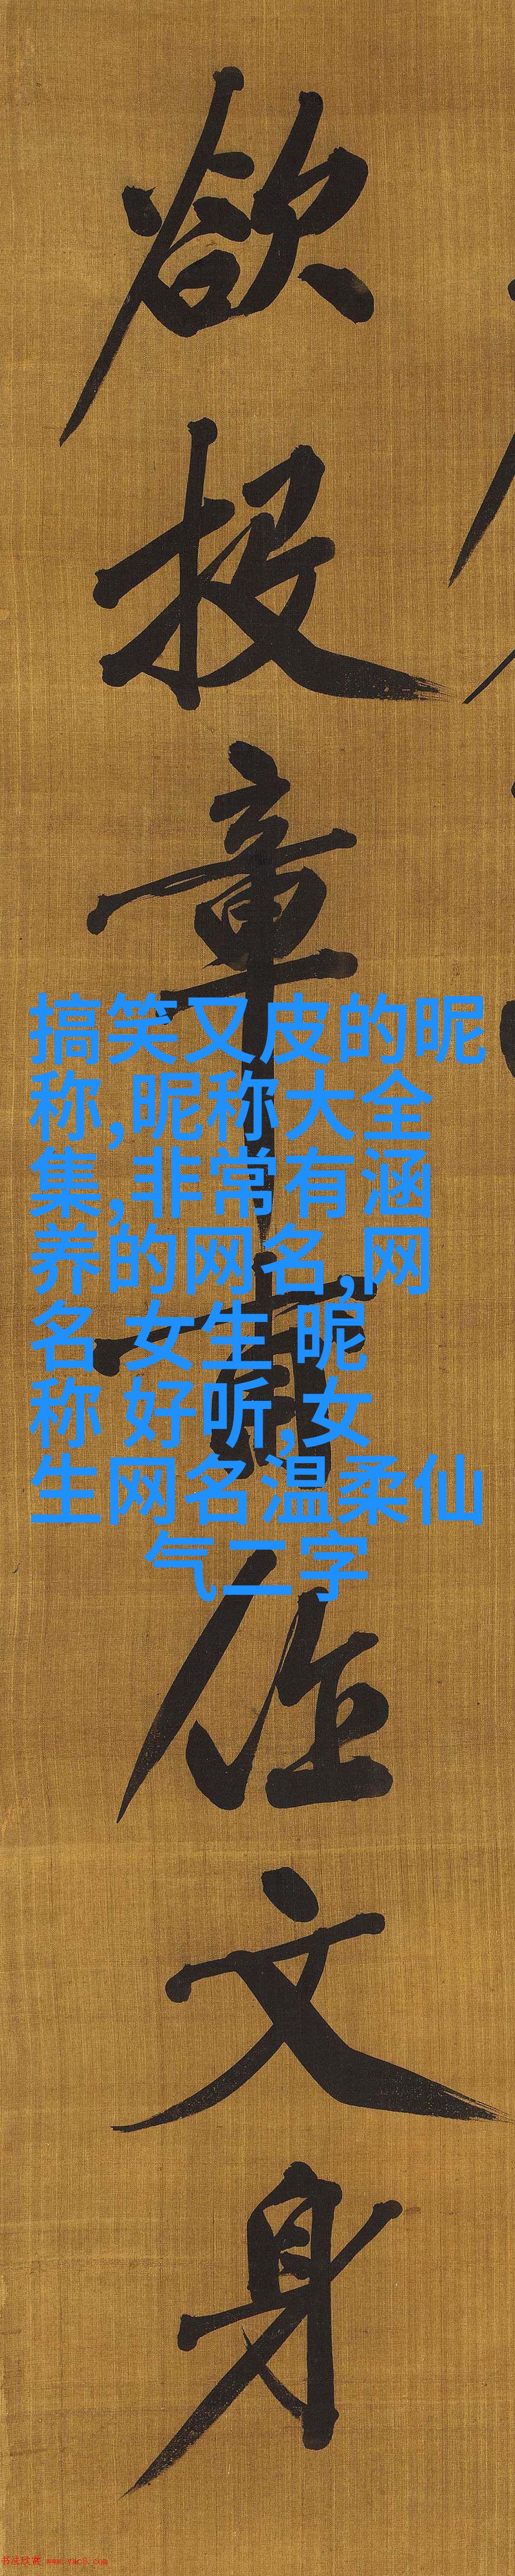 欲投章甫作文身
搞笑又皮的昵
称,昵称大全
集,非常有涵
养的网名,网
名 女生 昵
称 好听,女
生网名温柔仙
气二字
书法欣赏 www.yac8.com